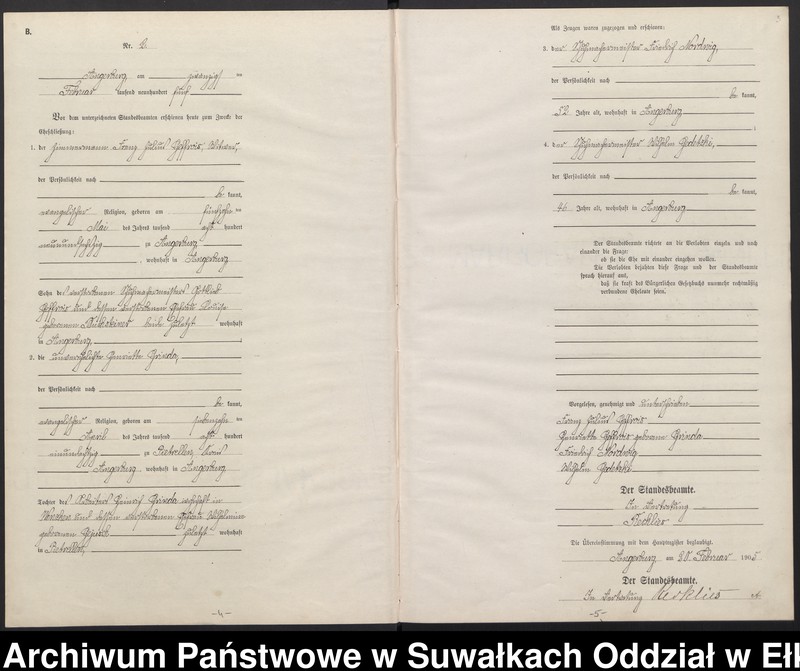 B.
Nr. 2.
Angerburg am zwanzigsten
Februar tausend neunhundert fünf
Vor dem unterzeichneten Standesbeamten erschienen heute zum Zwecke der
Eheschließung:
1. der Zimmermann Franz Julius Witwer,
der Persönlichkeit nach
be kannt,
evangelischer Religion, geboren am fünfzehnten
Mai des Jahres tausend acht hundert
neunundsechzig zu Angerburg
, wohnhaft in Angerburg
Sohn des verstorbenen Schuhmachermeisters Gottlieb
und dessen verstorbenen Ehefrau Louise
geborenen beide zuletzt wohnhaft
in Angerburg,
2. die unverehelichte Henriette Grinda,
der Persönlichkeit nach
be kannt,
evangelischer Religion, geboren am siebzehnten
April des Jahres tausend acht hundert
zu Pietrellen, Kreis
Angerburg, wohnhaft in Angerburg
Tochter des Arbeiters Heinrich Grinda wohnhaft in
und dessen verstorbenen Ehefrau Wilhelmine
geborenen zuletzt wohnhaft
in Pietrellen,
-4-
Als Zeugen waren zugezogen und erschienen:
3. der Schuhmachermeister Friedrich Nordwig,
der Persönlichkeit nach
be kannt,
52 Jahre alt, wohnhaft in Angerburg
;
4. der Schuhmachermeister Wilhelm
der Persönlichkeit nach
be kannt,
46 Jahre alt, wohnhaft in Angerburg
Der Standesbeamte richtete an die Verlobten einzeln und nach
einander die Frage:
ob sie die Ehe mit einander eingehen wollen.
Die Verlobten bejahten diese Frage und der Standesbeamte
sprach hierauf aus,
daß sie kraft des Bürgerlichen Gesetzbuchs nunmehr rechtmäßig
verbundene Eheleute seien.
Vorgelesen, genehmigt und unterschrieben
Franz Julius
Henriette geborene Grinda
Friedrich Nordwig
Wilhelm
Der Standesbeamte.
In Vertretung
Die Übereinstimmung mit dem Hauptregister beglaubigt.
Angerburg am 20. Februar 1905
Der Standesbeamte.
In Vertretung
-5-
Archiwum Państwowe w Suwałkach Oddział w Eł